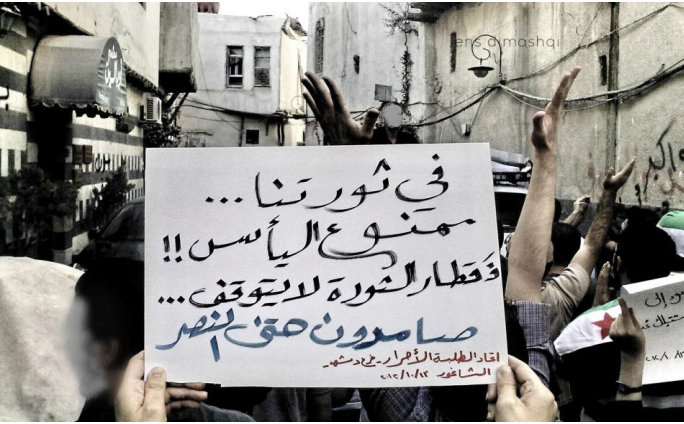 lens dimashqi
في ثورتنا...
ممنوع اليأس!!
فقطار الثورة لا يتوقف...
صامدون حتى النصر
اتحاد الطلبة الأحرار - في دمشق
الشاغور ٢٠١٢/١٠/١٣
اكبر